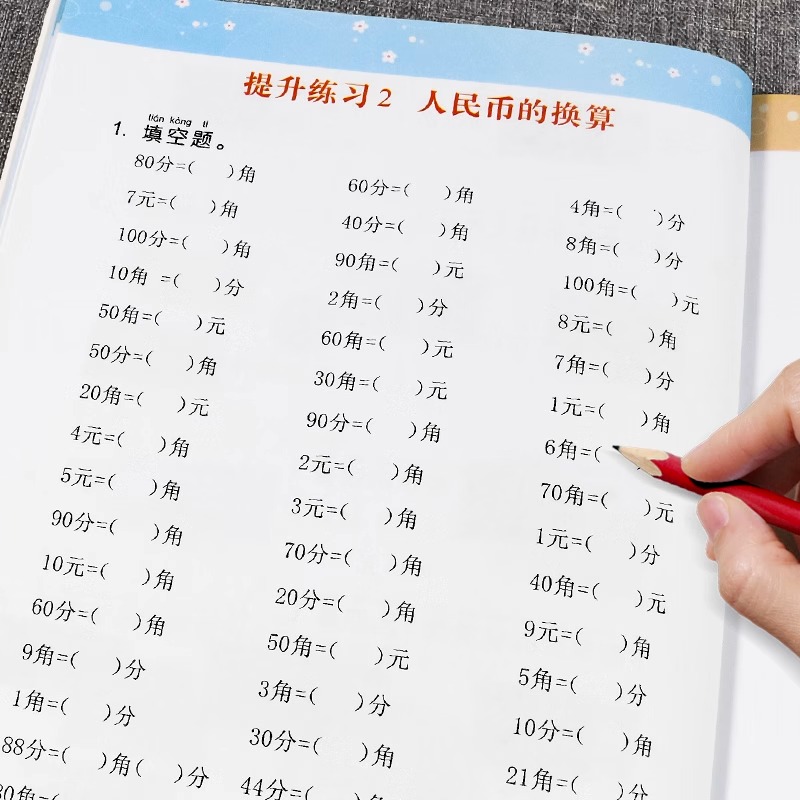 提升练习2 人民币的换算
tián kòng tí
1. 填空题。
80分=( )角 60分=( )角 4角=( )分
7元=( )角 40分=( )角 8角=( )分
100分=( )角 90角=( )元 100角=( )元
10角 =( )分 2角=( )分 8元=( )角
50角=( )元 60角=( )元 7角=( )分
50分=( )角 30角=( )元 1元=( )角
20角=( )元 90分=( )角 6角=(
4元=( )角 2元=( )角 70角=( )元
5元=( )角 3元=( )角 1元=( )分
90分=( )角 70分=( )角 40角=( )元
10元=( )角 20分=( )角 9元=( )角
60分=( )角 50角=( )元 5角=( )分
9角=( )分 3角=( )分 10分=( )角
1角=( )分 30分=( )角 21角=( )分
88分=( )角( )分 44分=(